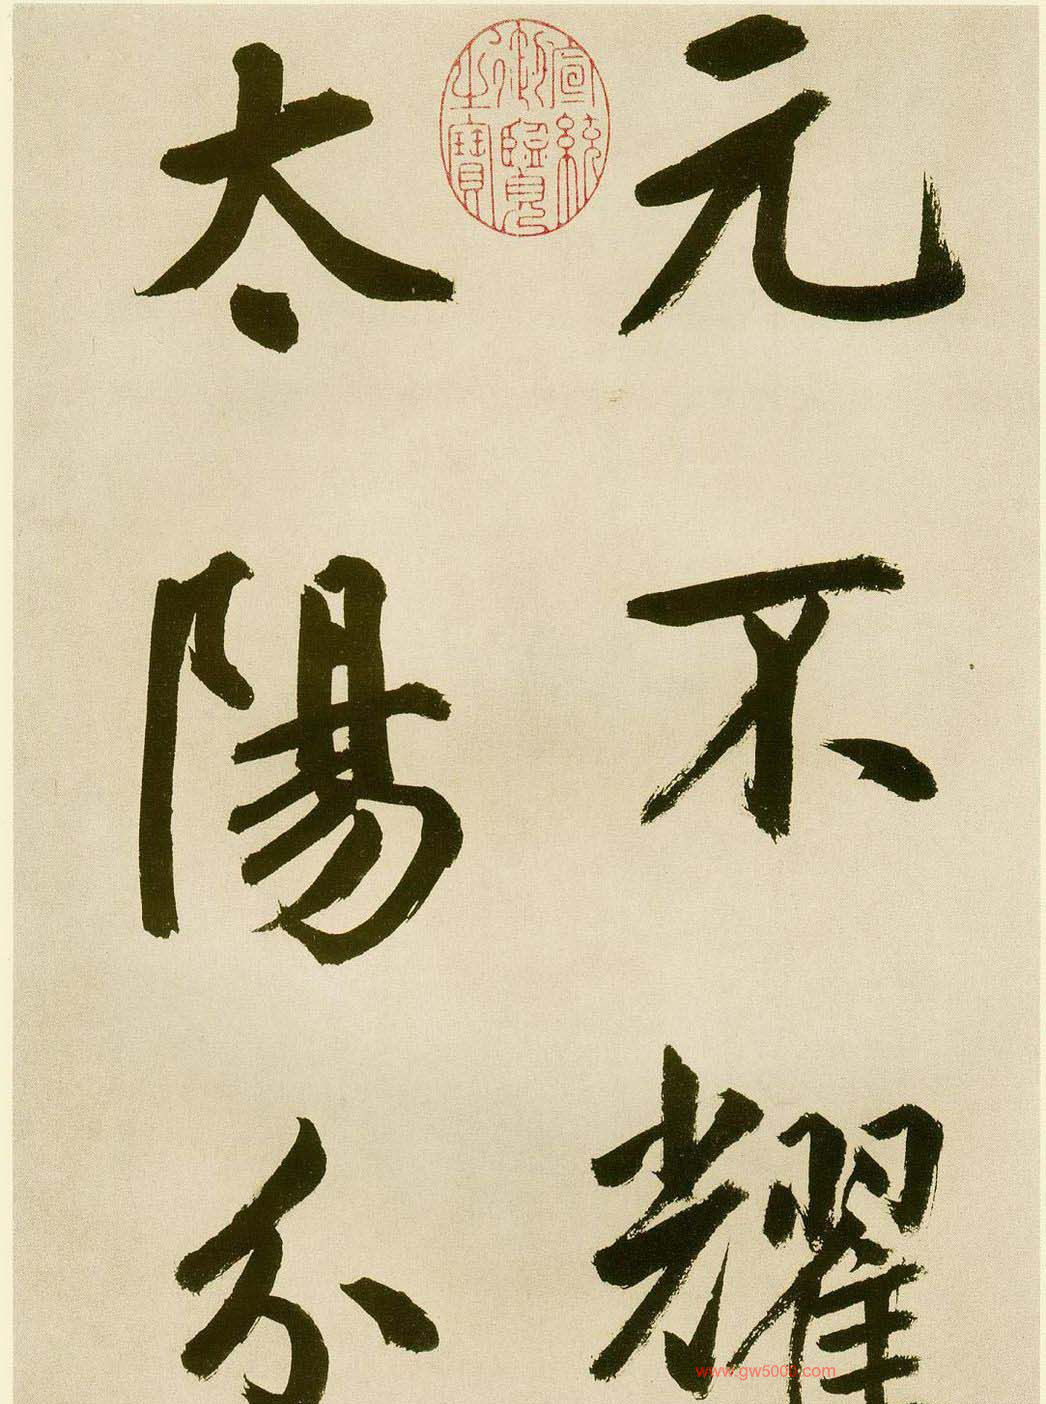 元不耀
太陽分
宣統御覽之寶
www.gw500j.com